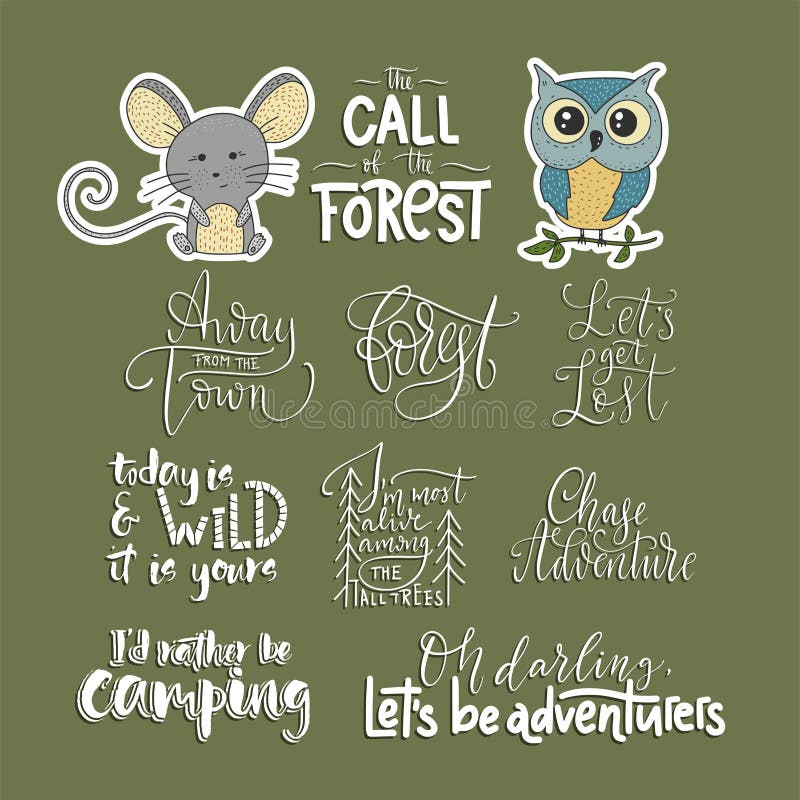 the
CALL
of the
FOREST
Away
FROM THE
Town
forest
Let's
get
Lost
today is
& WILD
it is yours
I'm most
alive
among
THE
TALL TREES
Chase
Adventure
I'd rather be
camping
Oh darling,
Let's be adventurers
dreamstime.com